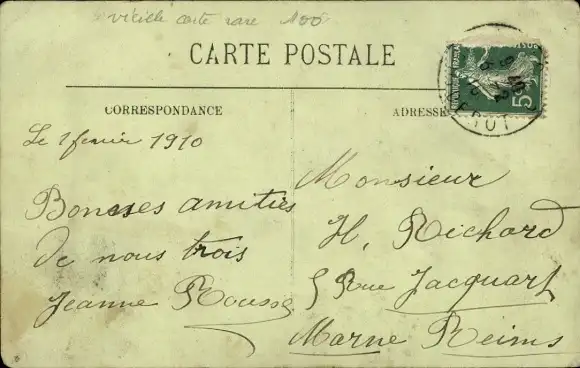 vieille carte rare 100
CARTE POSTALE
CORRESPONDANCE
ADRESSE
Le 1 fevrier 1910
Bonnes amitiés
de nous trois
Jeanne Rousse
Monsieur
H. Richard
5 Rue Jacquart
Marne Reims
5